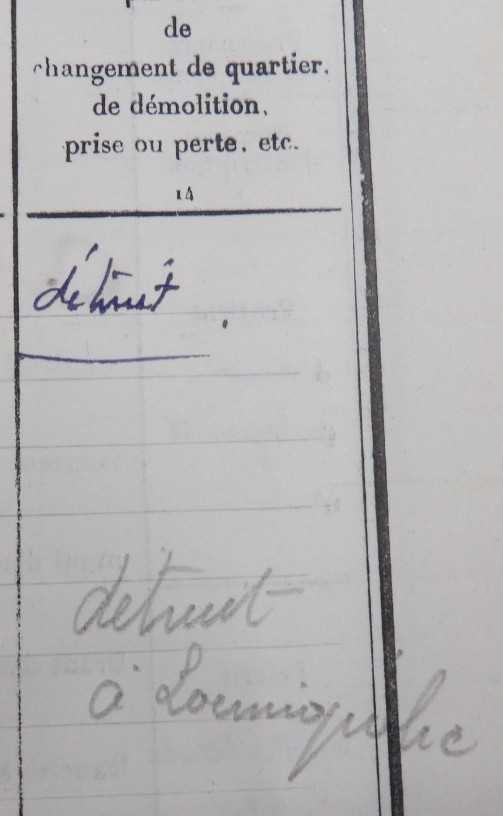 de
changement de quartier.
de démolition,
prise ou perte. etc.
14
détruit
détruit
à Locmiquélic